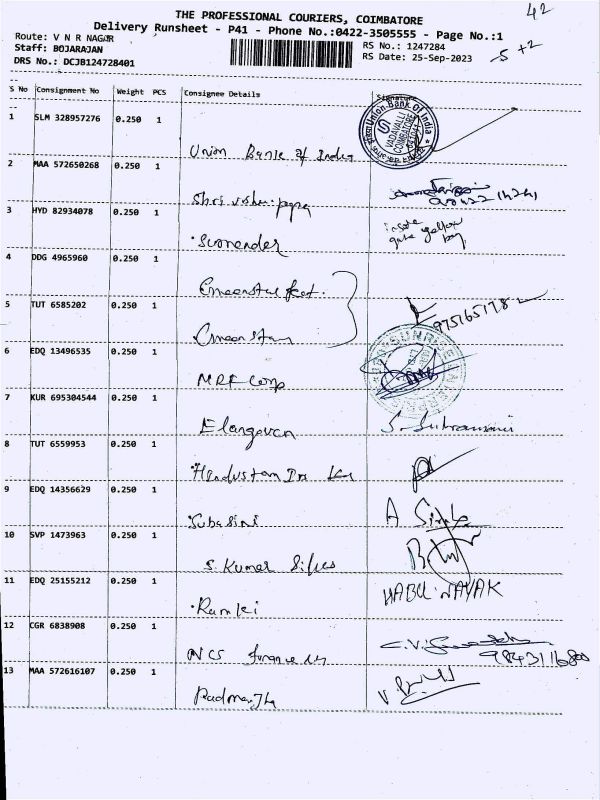 42
THE PROFESSIONAL COURIERS, COIMBATORE
Delivery Runsheet - P41 - Phone No.:0422-3505555 - Page No.:1
Route: V N R NAGAR
RS No.: 1247284
-5 +2
Staff: BOJARAJAN
RS Date: 25-Sep-2023
DRS No.: DCJB124728401
S No Consignment No Weight PCS Consignee Details Signature
1 SLM 328957276 0.250 1
Union Bank of India
Union Bank of India
VADAVALLI
COIMBATORE
2 MAA 572650268 0.250 1
3 HYD 82934078 0.250 1
inside
gate yellow
bag
Surrender
4 DDG 4965960 0.250 1
5 TUT 6585202 0.250 1
9751651782
6 EDQ 13496535 0.250 1
MRF Corp
SUNRISE
7 KUR 695304544 0.250 1
Elangovan
8 TUT 6559953 0.250 1
Hindustan
9 EDQ 14356629 0.250 1
Subasini
A
10 SVP 1473963 0.250 1
S. Kumar Silks
11 EDQ 25155212 0.250 1
HABU NAYAK
Ramki
12 CGR 6838908 0.250 1
NCS
13 MAA 572616107 0.250 1